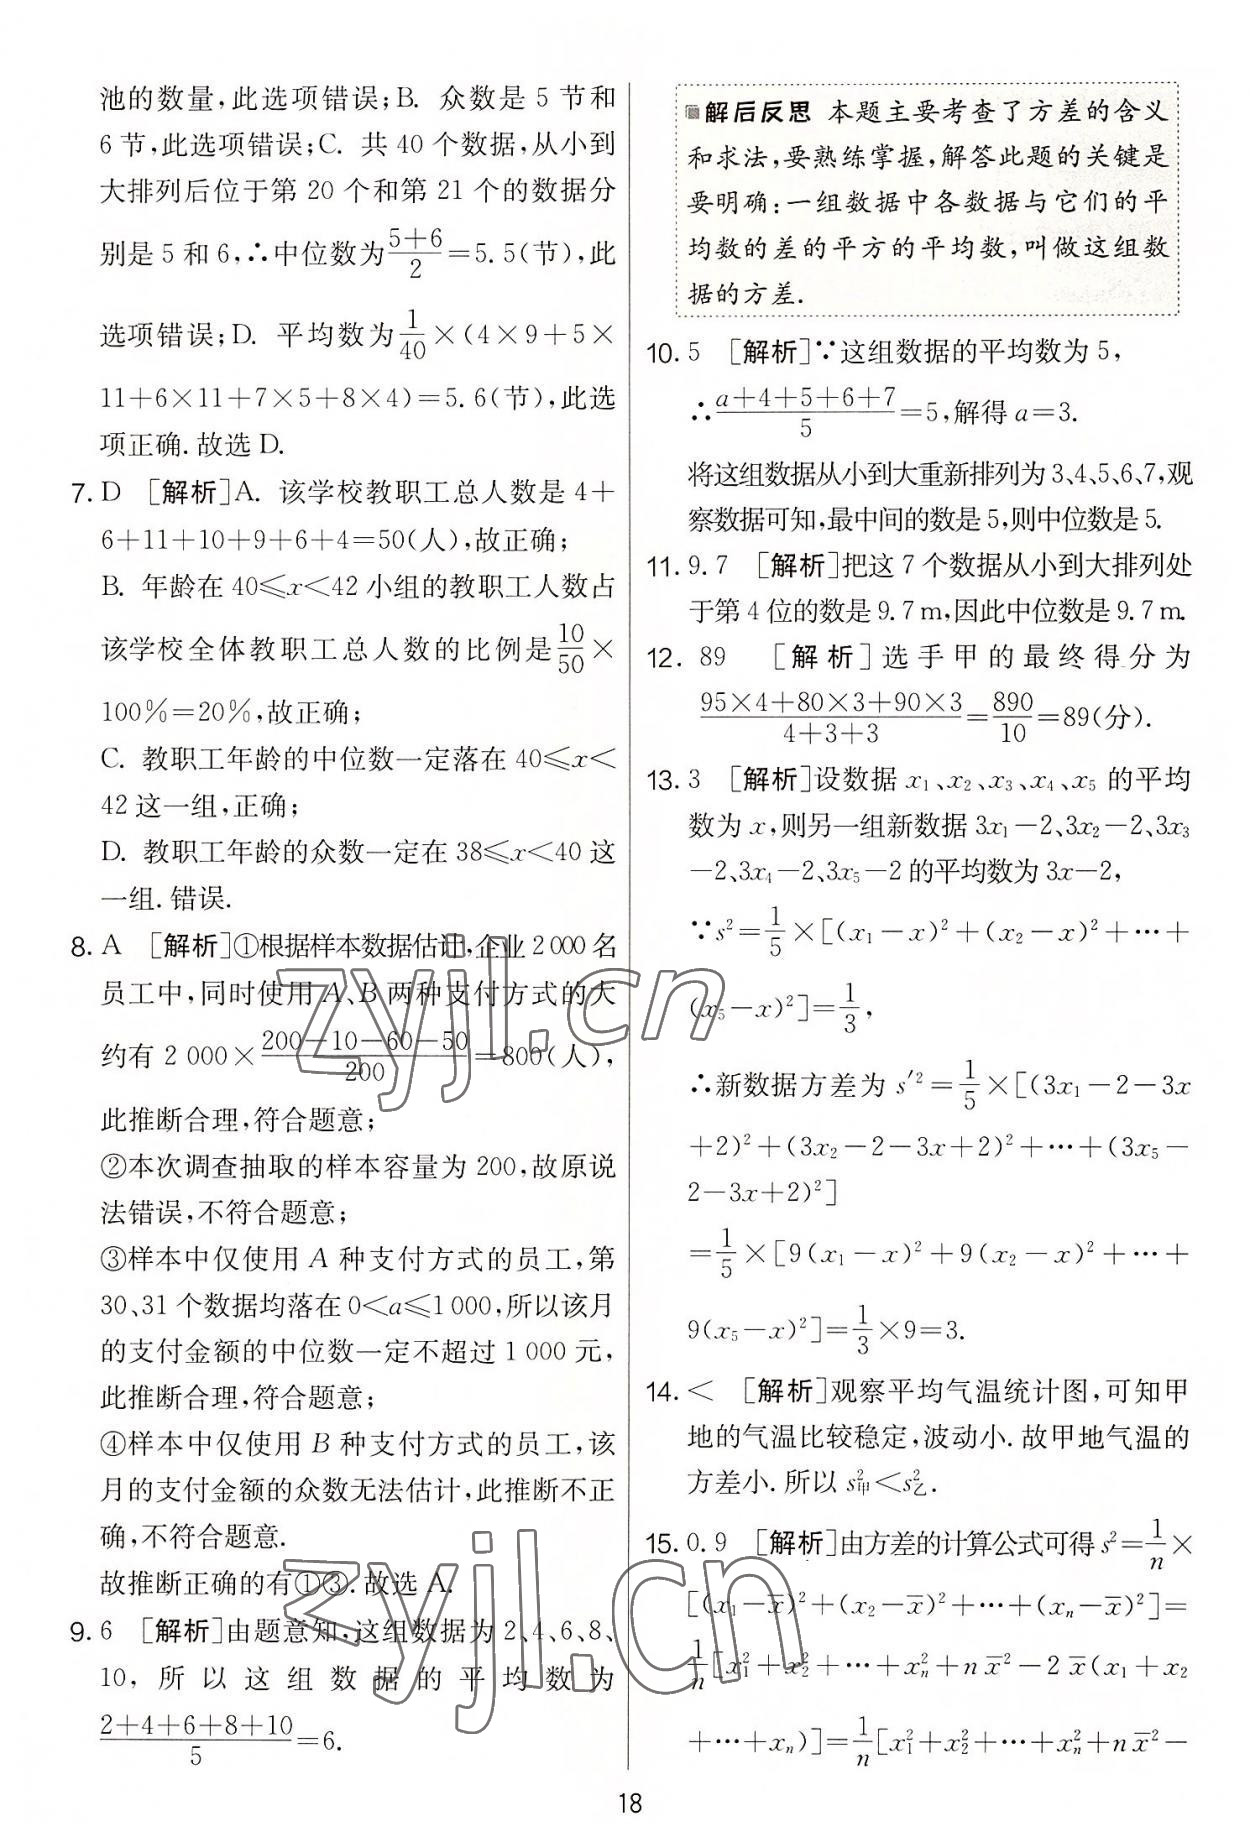 池的数量,此选项错误;B. 众数是 5 节和
6 节,此选项错误;C. 共 40 个数据,从小到
大排列后位于第 20 个和第 21 个的数据分
别是 5 和 6,∴中位数为\frac{5+6}{2}=5.5(节),此
选项错误;D. 平均数为\frac{1}{40}×(4×9+5×
11+6×11+7×5+8×4)=5.6(节),此选
项正确.故选 D.
7. D [解析]A. 该学校教职工总人数是 4+
6+11+10+9+6+4=50(人),故正确;
B. 年龄在 40≤x<42 小组的教职工人数占
该学校全体教职工总人数的比例是\frac{10}{50}×
100%=20%,故正确;
C. 教职工年龄的中位数一定落在 40≤x<
42 这一组,正确;
D. 教职工年龄的众数一定在 38≤x<40 这
一组.错误.
8. A [解析]①根据样本数据估计,企业 2 000 名
员工中,同时使用 A、B 两种支付方式的大
约有 2 000×\frac{200-10-60-50}{200}=800(人),
此推断合理,符合题意;
②本次调查抽取的样本容量为 200,故原说
法错误,不符合题意;
③样本中仅使用 A 种支付方式的员工,第
30、31 个数据均落在 0<a≤1 000,所以该月
的支付金额的中位数一定不超过 1 000 元,
此推断合理,符合题意;
④样本中仅使用 B 种支付方式的员工,该
月的支付金额的众数无法估计,此推断不正
确,不符合题意.
故推断正确的有①③.故选 A.
9. 6 [解析]由题意知,这组数据为 2、4、6、8、
10,所以这组数据的平均数为
\frac{2+4+6+8+10}{5}=6.
解后反思 本题主要考查了方差的含义
和求法,要熟练掌握,解答此题的关键是
要明确:一组数据中各数据与它们的平
均数的差的平方的平均数,叫做这组数
据的方差.
10. 5 [解析]∵这组数据的平均数为 5,
∴\frac{a+4+5+6+7}{5}=5,解得 a=3.
将这组数据从小到大重新排列为 3、4、5、6、7,观
察数据可知,最中间的数是 5,则中位数是 5.
11. 9.7 [解析]把这 7 个数据从小到大排列处
于第 4 位的数是 9.7 m,因此中位数是 9.7 m.
12. 89 [解析]选手甲的最终得分为
\frac{95×4+80×3+90×3}{4+3+3}=\frac{890}{10}=89(分).
13. 3 [解析]设数据 x₁、x₂、x₃、x₄、x₅ 的平均
数为 x,则另一组新数据 3x₁-2、3x₂-2、3x₃
-2、3x₄-2、3x₅-2 的平均数为 3x-2,
∵s²=\frac{1}{5}×[(x₁-x)²+(x₂-x)²+…+
(x₅-x)²]=\frac{1}{3},
∴新数据方差为 s′²=\frac{1}{5}×[(3x₁-2-3x
+2)²+(3x₂-2-3x+2)²+…+(3x₅-
2-3x+2)²]
=\frac{1}{5}×[9(x₁-x)²+9(x₂-x)²+…+
9(x₅-x)²]=\frac{1}{3}×9=3.
14. < [解析]观察平均气温统计图,可知甲
地的气温比较稳定,波动小.故甲地气温的
方差小.所以 s²甲<s²乙.
15. 0.9 [解析]由方差的计算公式可得 s²=\frac{1}{n}×
[(x₁-x̄)²+(x₂-x̄)²+…+(xₙ-x̄)²]=
\frac{1}{n}[x₁²+x₂²+…+xₙ²+n x̄²-2 x̄(x₁+x₂
+…+xₙ)]=\frac{1}{n}[x₁²+x₂²+…+xₙ²+n x̄²-
18
zyjl.cn
zyjl.cn